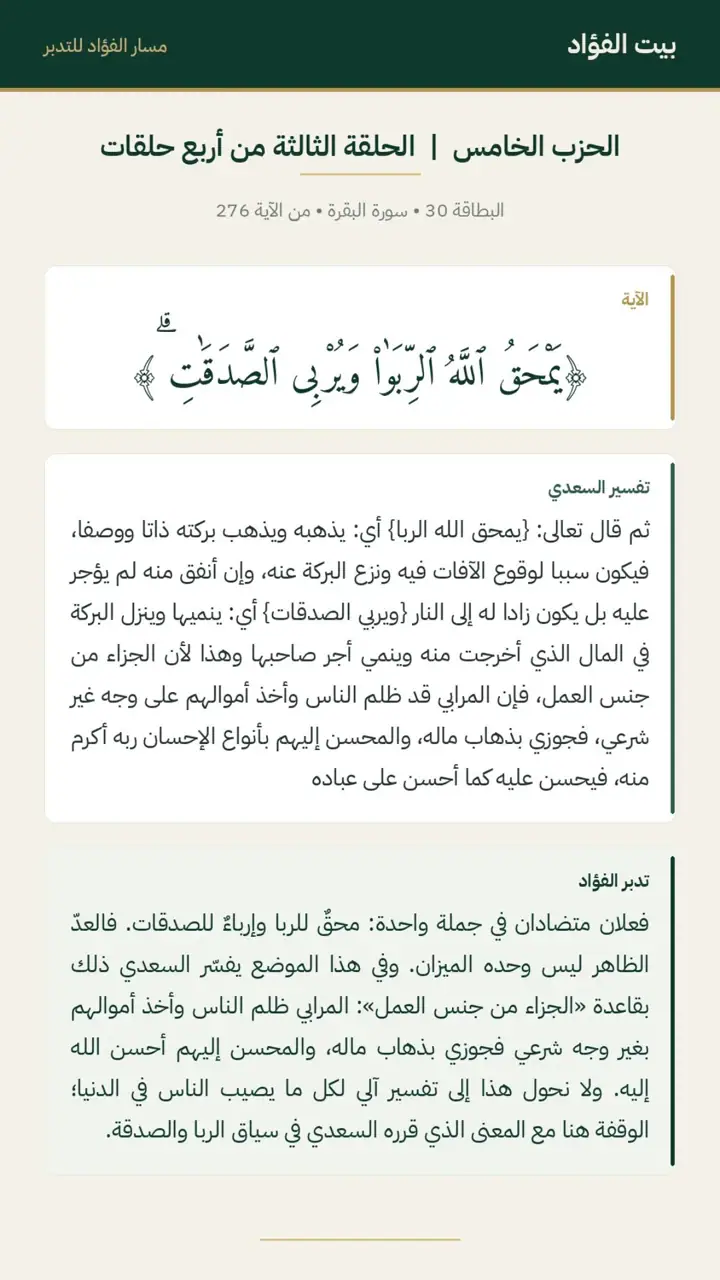 بيت الفؤاد
مسار الفؤاد للتدبر
الحزب الخامس | الحلقة الثالثة من أربع حلقات
البطاقة 30 • سورة البقرة • من الآية 276
الآية
﴿يَمْحَقُ ٱللَّهُ ٱلرِّبَوٰا۟ وَيُرْبِى ٱلصَّدَقَٰتِ ۗ﴾
تفسير السعدي
ثم قال تعالى: {يمحق الله الربا} أي: يذهبه ويذهب بركته ذاتا ووصفا،
فيكون سببا لوقوع الآفات فيه ونزع البركة عنه، وإن أنفق منه لم يؤجر
عليه بل يكون زادا له إلى النار {ويربي الصدقات} أي: ينميها وينزل البركة
في المال الذي أخرجت منه وينمي أجر صاحبها وهذا لأن الجزاء من
جنس العمل، فإن المرابي قد ظلم الناس وأخذ أموالهم على وجه غير
شرعي، فجوزي بذهاب ماله، والمحسن إليهم بأنواع الإحسان ربه أكرم
منه، فيحسن عليه كما أحسن على عباده
تدبر الفؤاد
فعلان متضادان في جملة واحدة: محقٌ للربا وإرباءٌ للصدقات. فالعدّ
الظاهر ليس وحده الميزان. وفي هذا الموضع يفسّر السعدي ذلك
بقاعدة «الجزاء من جنس العمل»: المرابي ظلم الناس وأخذ أموالهم
بغير وجه شرعي فجوزي بذهاب ماله، والمحسن إليهم أحسن الله
إليه. ولا نحول هذا إلى تفسير آلي لكل ما يصيب الناس في الدنيا؛
الوقفة هنا مع المعنى الذي قرره السعدي في سياق الربا والصدقة.